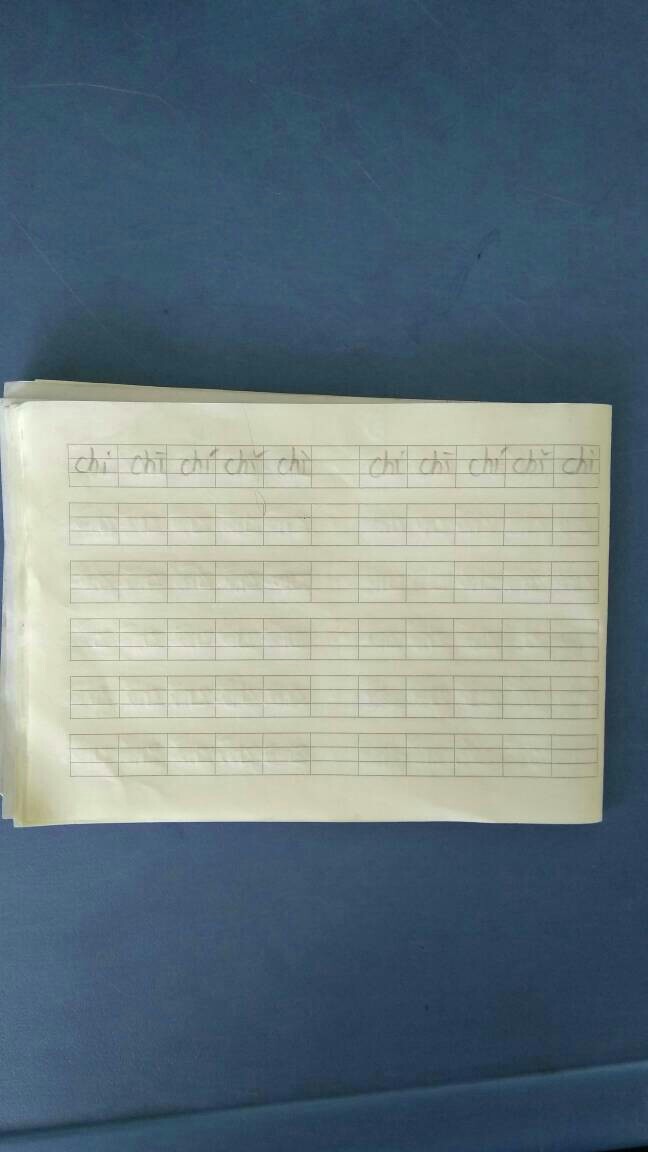 chi chī chí chǐ chì chi chī chí chǐ chì